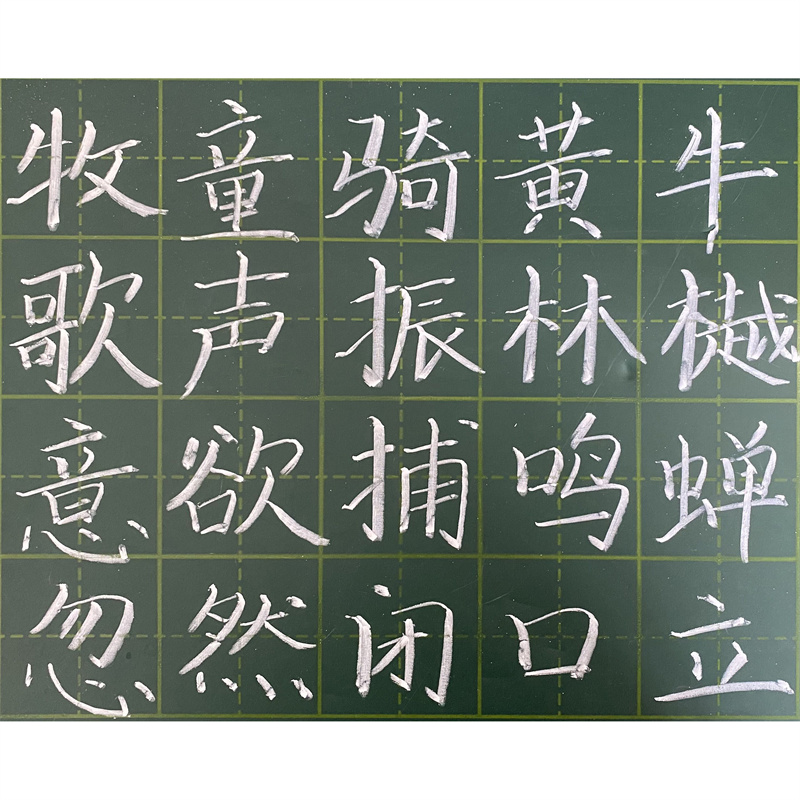 牧童骑黄牛
歌声振林樾
意欲捕鸣蝉
忽然闭口立